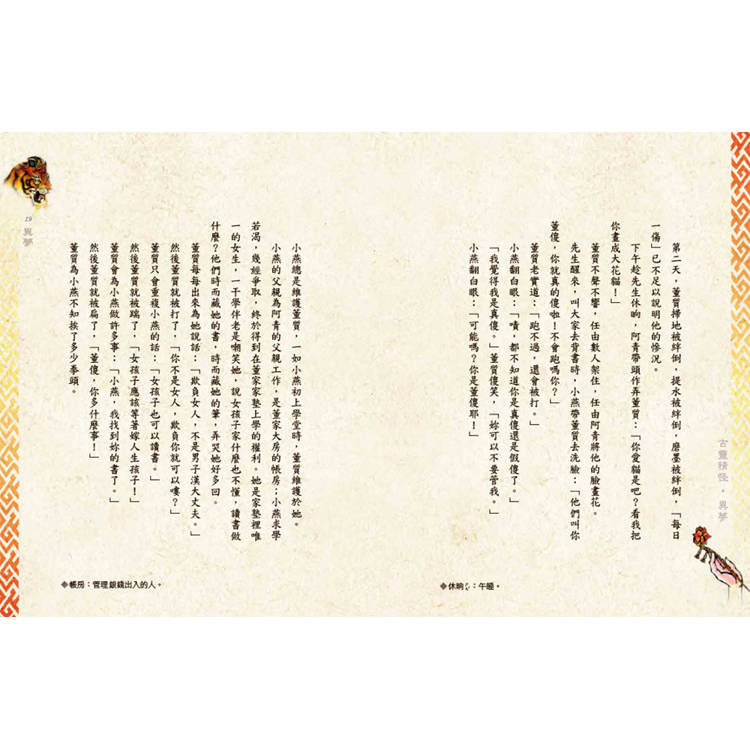 古靈精怪・異夢
第二天，董質掃地被絆倒，提水被絆倒，磨墨被絆倒，「每日
一傷」已不足以說明他的慘況。
下午趁先生休晌，阿青帶頭作弄董質：「你愛貓是吧？看我把
你畫成大花貓！」
董質不聲不響，任由數人架住，任由阿青將他的臉畫花。
先生醒來，叫大家去背書時，小燕帶董質去洗臉：「他們叫你
董傻，你就真的傻啦！不會跑嗎你？」
董質老實道：「跑不過，還會被打。」
小燕翻白眼：「嘖，都不知道你是真傻還是假傻了。」
「我覺得我是真傻。」董質傻笑，「妳可以不要管我。」
小燕翻白眼：「可能嗎？你是董傻耶！」
※休晌：午睡。
小燕總是維護董質，一如小燕初上學堂時，董質維護於她。
小燕的父親為阿青的父親工作，是董家大房的帳房；小燕求學
若渴，幾經爭取，終於得到在董家家塾上學的權利。她是家塾裡唯
一的女生，一干學伴老是嘲笑她，說女孩子家什麼也不懂，讀書做
什麼？他們時而藏她的書，時而藏她的筆，弄哭她好多回。
董質每每出來為她說話：「欺負女人，不是男子漢大丈夫。」
然後董質就被打了，「你不是女人，欺負你就可以嘍？」
董質只會重複小燕的話：「女孩子也可以讀書。」
然後董質就被踹了，「女孩子應該等著嫁人生孩子！」
董質會為小燕做許多事：「小燕，我找到妳的書了。」
然後董質就被扁了，「董傻，你多什麼事！」
董質為小燕不知挨了多少拳頭。
※帳房：管理銀錢出入的人。
19 異夢